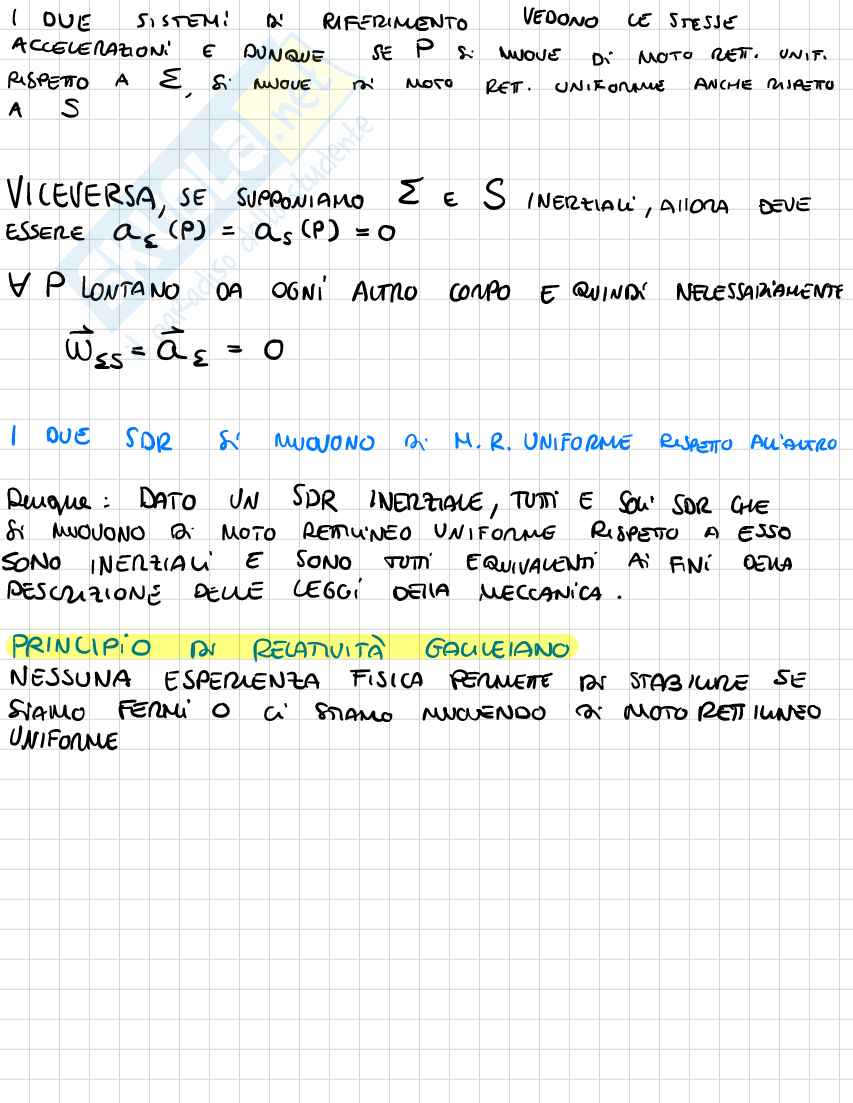 I DUE SISTEMI DI RIFERIMENTO VEDONO LE STESSE
ACCELERAZIONI E DUNQUE SE P SI MUOVE DI MOTO RETT. UNIF.
RISPETTO A Σ, SI MUOVE DI MOTO RET. UNIFORME ANCHE RISPETTO
A S
VICEVERSA, SE SUPPONIAMO Σ E S INERZIALI, ALLORA DEVE
ESSERE a_Σ(P) = a_S(P) = 0
∀ P LONTANO DA OGNI ALTRO CORPO E QUINDI NECESSARIAMENTE
\vec{ω}_{ΣS} = \vec{a}_Σ = 0
I DUE SDR SI MUOVONO DI M.R. UNIFORME RISPETTO ALL'ALTRO
Dunque: DATO UN SDR INERZIALE, TUTTI E SOLI SDR CHE
SI MUOVONO DI MOTO RETTILINEO UNIFORME RISPETTO A ESSO
SONO INERZIALI E SONO TUTTI EQUIVALENTI AI FINI DELLA
DESCRIZIONE DELLE LEGGI DELLA MECCANICA.
PRINCIPIO DI RELATIVITÀ GALILEIANO
NESSUNA ESPERIENZA FISICA PERMETTE DI STABILIRE SE
SIAMO FERMI O CI STIAMO MUOVENDO DI MOTO RETTILINEO
UNIFORME
SKUOLA.net
il paradiso dello studente